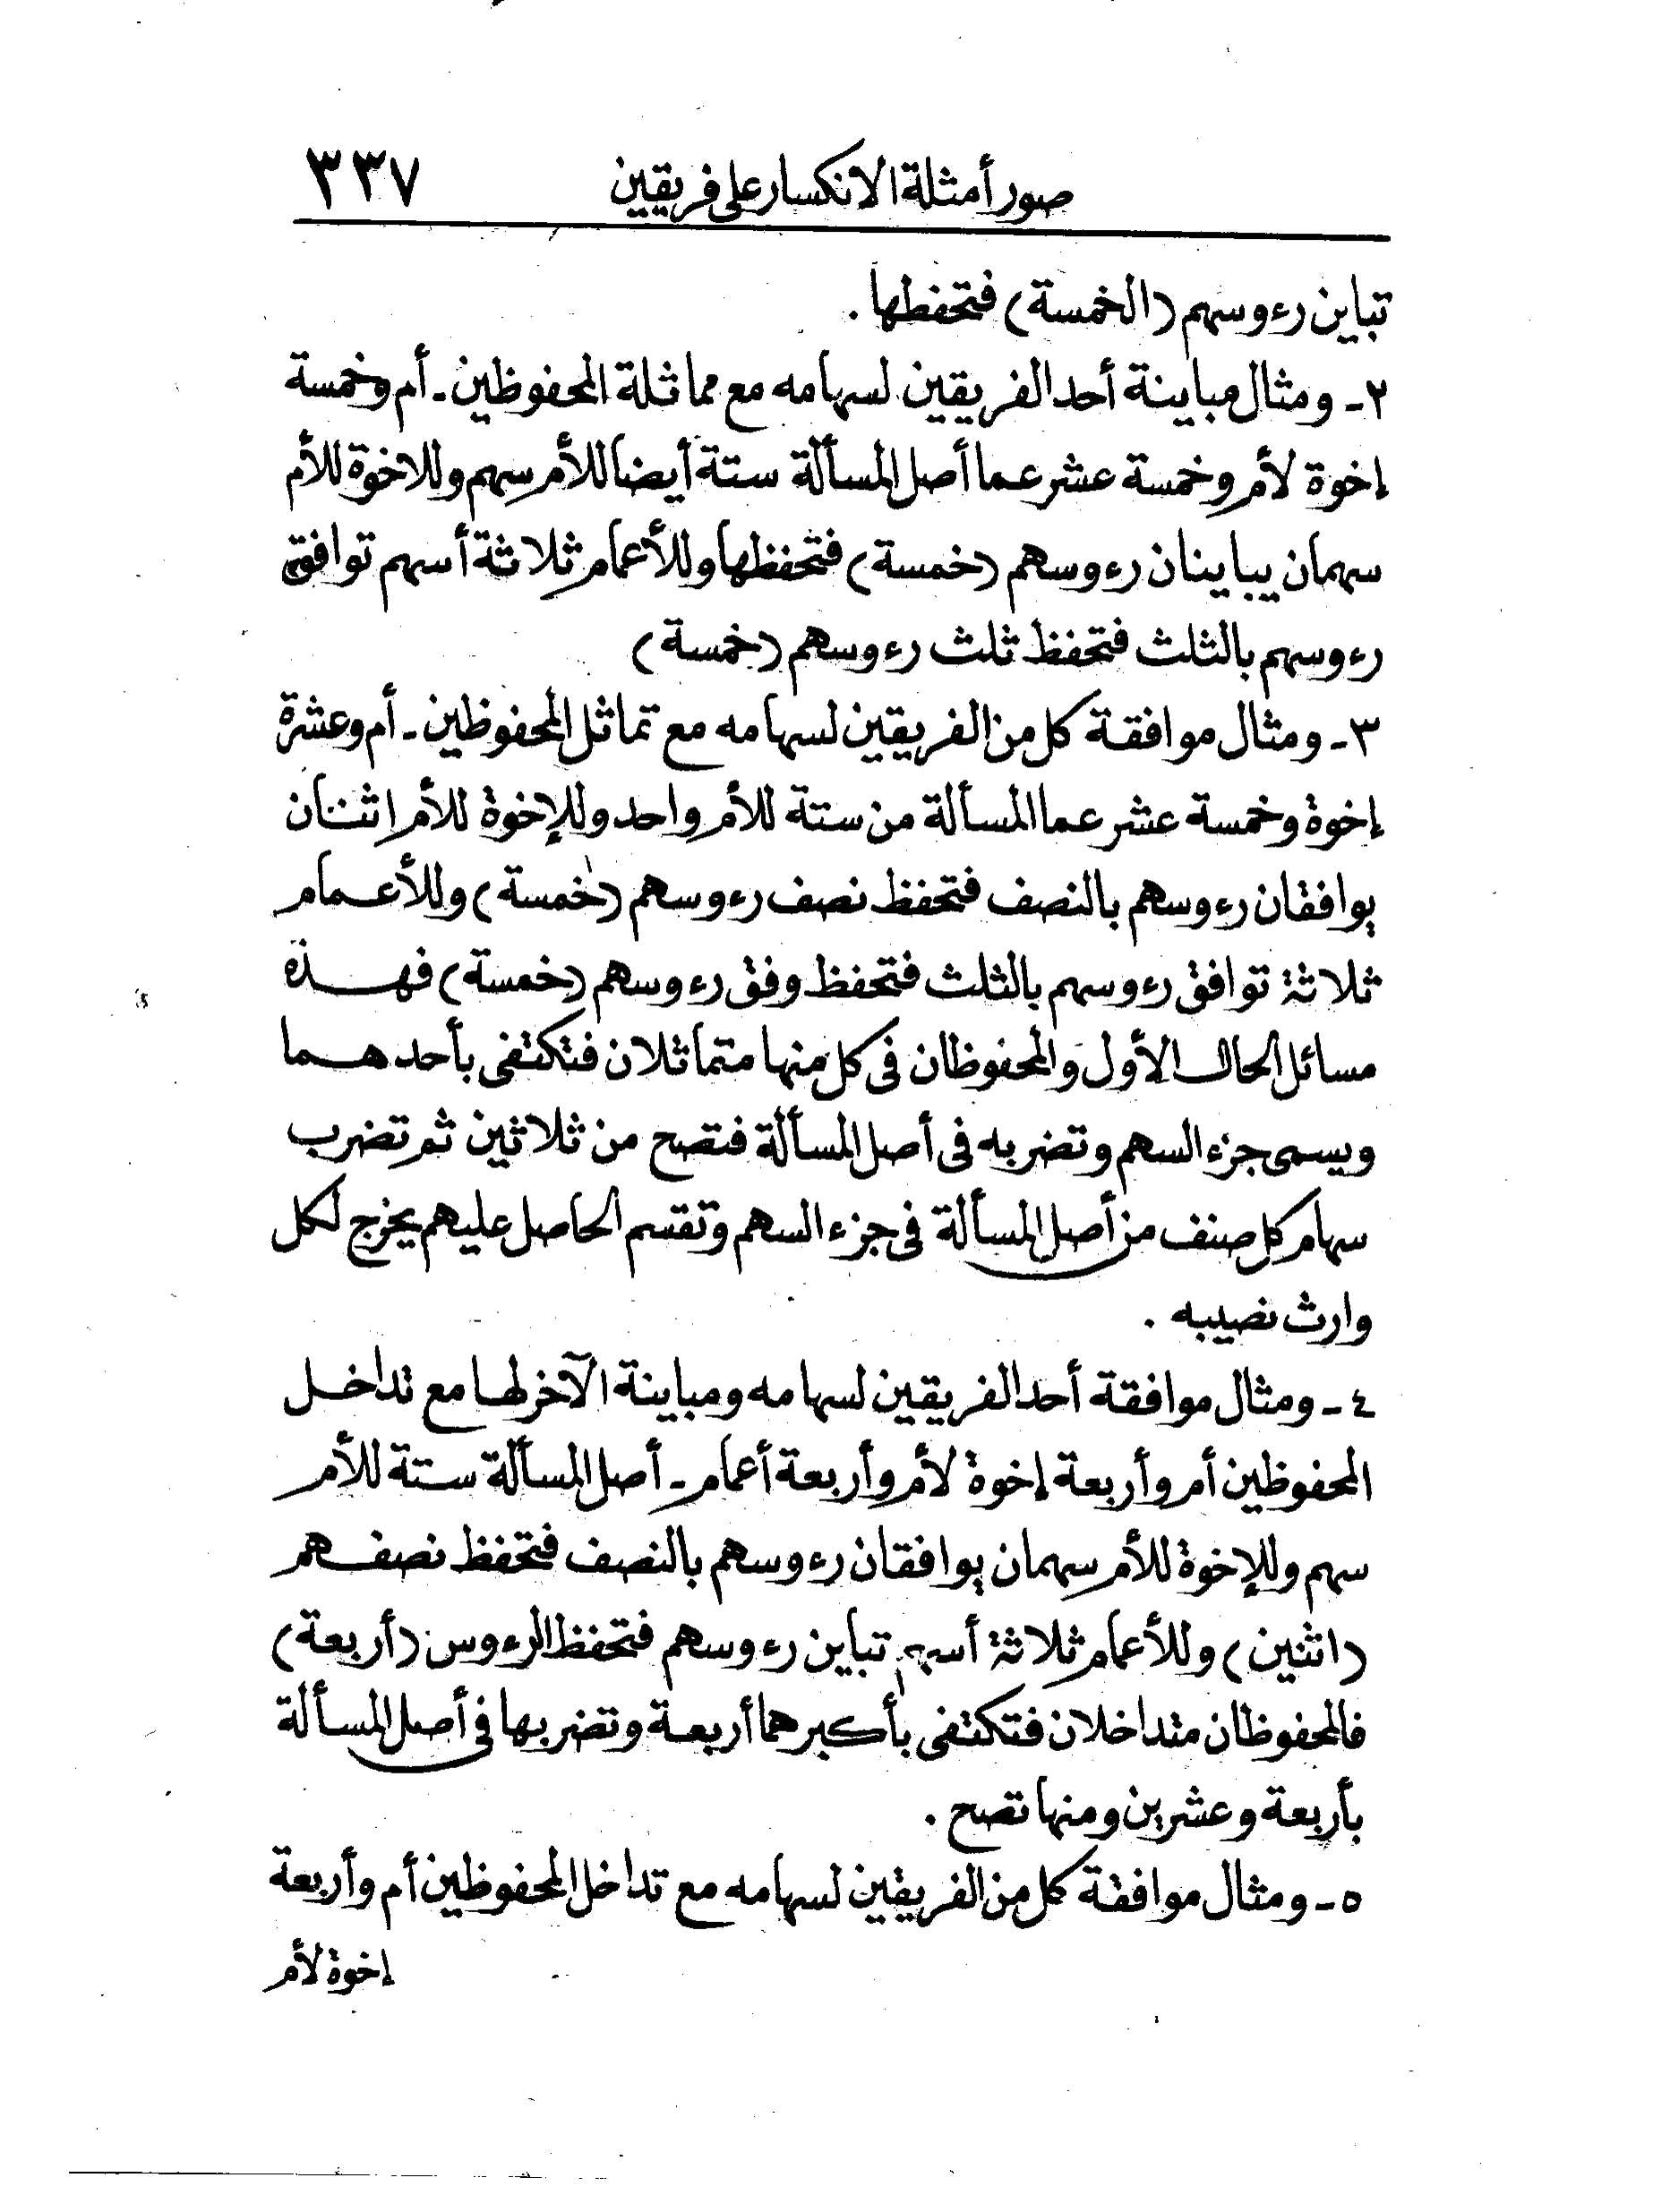 صور أمثلة الانكسار على فريقين ٣٣٧
تباين رءوسهم (الخمسة) فتحفظها .
٢ـ ومثال مباينة أحد الفريقين لسهامه مع مماثلة المحفوظين ـ أم وخمسة
إخوة لأم وخمسة عشر عما أصل المسألة ستة أيضا للأم سهم وللاخوة للأم
سهمان يباينان رءوسهم (خمسة) فتحفظها وللأعمام ثلاثة أسهم توافق
رءوسهم بالثلث فتحفظ ثلث رءوسهم (خمسة)
٣ـ ومثال موافقة كل من الفريقين لسهامه مع تماثل المحفوظين ـ أم وعشرة
إخوة وخمسة عشر عما المسألة من ستة للأم واحد وللإخوة للأم اثنان
يوافقان رءوسهم بالنصف فتحفظ نصف رءوسهم (خمسة) وللأعمام
ثلاثة توافق رءوسهم بالثلث فتحفظ وفق رءوسهم (خمسة) فهذه
مسائل الحال الأول والمحفوظان فى كل منها متماثلان فتكتفى بأحدهما
ويسمى جزء السهم وتضربه فى أصل المسألة فتصح من ثلاثين ثم تضرب
سهام كل صنف من أصل المسألة فى جزء السهم وتقسم الحاصل عليهم يخرج لكل
وارث نصيبه .
٤ـ ومثال موافقة أحد الفريقين لسهامه ومباينة الآخر لها مع تداخل
المحفوظين أم وأربعة إخوة لأم وأربعة أعمام ـ أصل المسألة ستة للأم
سهم وللإخوة للأم سهمان يوافقان رءوسهم بالنصف فتحفظ نصفهم
(اثنين) وللأعمام ثلاثة أسهم تباين رءوسهم فتحفظ الرءوس (أربعة)
فالمحفوظان متداخلان فتكتفى بأكبرهما أربعة وتضربها فى أصل المسألة
بأربعة وعشرين ومنها تصح .
٥ـ ومثال موافقة كل من الفريقين لسهامه مع تداخل المحفوظين أم وأربعة
إخوة لأم